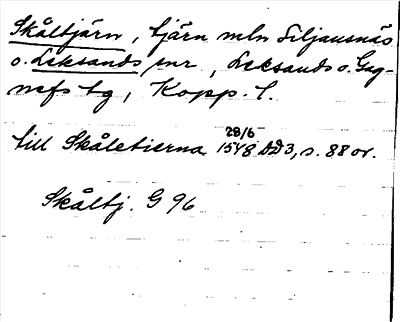 Skåltjärn, tjärn mln Siljansnäs
o. Leksands snr, Leksands o. Gag-
nefs tg, Kopp. l.
28/6
till Skåletierna 1548 DD3, s. 88 or.
Skåltj. G 96